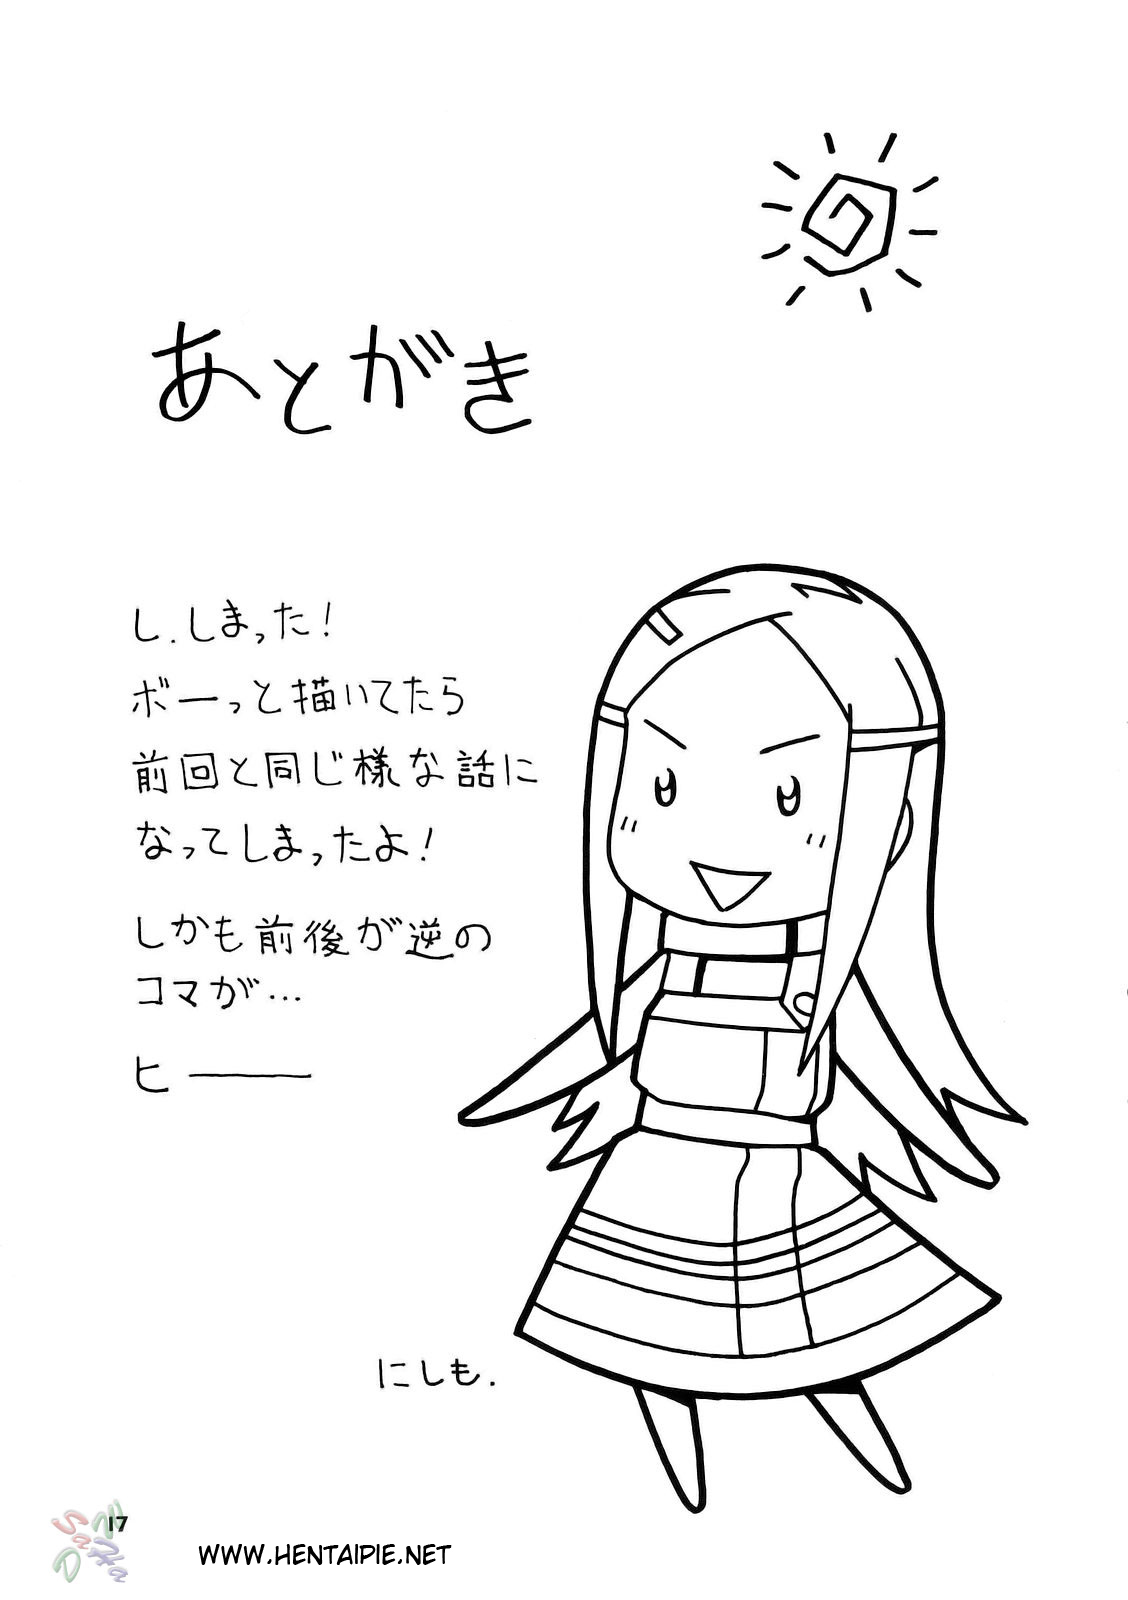 あとがき
し.しまった!
ボーっと描いてたら
前回と同じ様な話に
なってしまったよ!
しかも前後が逆の
コマが…
ヒ――
にしも.
17
WWW.HENTAIPIE.NET